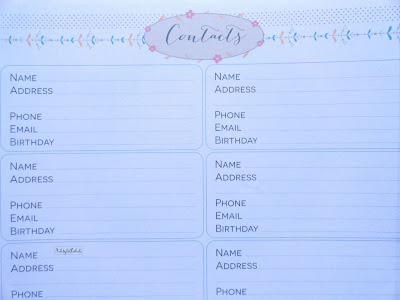 Contacts
Name
Address
Phone
Email
Birthday
Name
Address
Phone
Email
Birthday
Name
Address
Phone
Email
Birthday
Name
Address
Phone
Email
Birthday
Name
Address
Phone
Name
Address
Phone